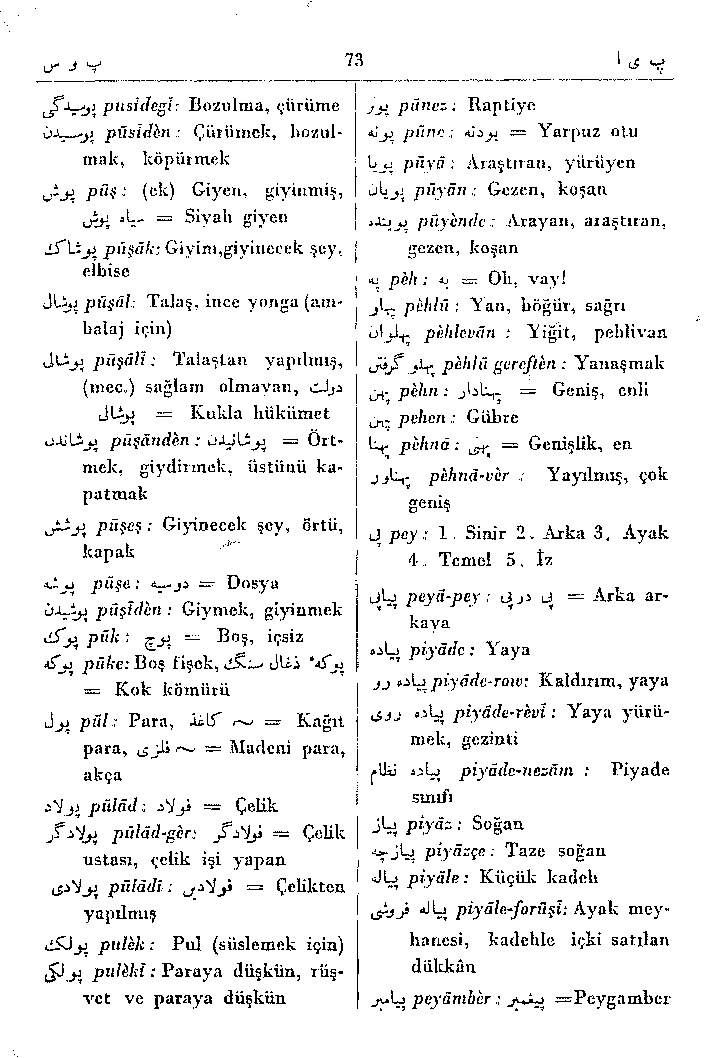 پ و س 73 پ ی ا
پوسیدگی pusîdegî: Bozulma, çürüme
پوسیدن pūsîdèn : Çürümek, bozul-
mak, köpürmek
پوش pūş : (ek) Giyen, giyinmiş,
سیاه پوش = Siyah giyen
پوشاک pūşāk: Giyim,giyinecek şey,
elbise
پوشال pūşāl: Talaş, ince yonga (am-
balaj için)
پوشالی pūşālî : Talaştan yapılmış,
(mec.) sağlam olmayan, دولت
پوشال = Kukla hükümet
پوشاندن pūşāndèn : پوشانیدن = Ört-
mek, giydirmek, üstünü ka-
patmak
پوشش pūşeş : Giyinecek şey, örtü,
kapak
پوشه pūşe : دوسیه = Dosya
پوشیدن pūşîdèn : Giymek, giyinmek
پوک pūk : پوچ = Boş, içsiz
پوکه pūke: Boş fişek, پوکه• ذغال سنگ
= Kok kömürü
پول pūl : Para, کاغذ ~ = Kağıt
para, فلزی ~ = Madeni para,
akça
پولاد pūlād : فولاد = Çelik
پولادگر pūlād-gèr: فولادگر = Çelik
ustası, çelik işi yapan
پولادی pūlādî : فولادی = Çelikten
yapılmış
پولک pulèk : Pul (süslemek için)
پولکی pulèkî : Paraya düşkün, rüş-
vet ve paraya düşkün
پونز pūnez : Raptiye
پونه pūne : پودنه = Yarpuz otu
پویا pūyā : Araştıran, yürüyen
پویان pūyān : Gezen, koşan
پوینده pūyènde : Arayan, araştıran,
gezen, koşan
په pèh : به = Oh, vay!
پهلو pèhlū : Yan, böğür, sağrı
پهلوان pèhlevān : Yiğit, pehlivan
پهلو گرفتن pèhlū gereftèn : Yanaşmak
پهن pèhn : پهنادار = Geniş, enli
پهن pehen : Gübre
پهنا pèhnā : پهنی = Genişlik, en
پهناور pèhnā-vèr : Yayılmış, çok
geniş
پی pey : 1. Sinir 2. Arka 3. Ayak
4. Temel 5. İz
پیاپی peyā-pey : پی در پی = Arka ar-
kaya
پیاده piyāde : Yaya
پیاده رو piyāde-row: Kaldırım, yaya
پیاده روی piyāde-rèvî : Yaya yürü-
mek, gezinti
پیاده نظام piyāde-nezām : Piyade
sınıfı
پیاز piyāz : Soğan
پیازچه piyāzçe : Taze soğan
پیاله piyāle : Küçük kadeh
پیاله فروشی piyāle-forūşî: Ayak mey-
hanesi, kadehle içki satılan
dükkân
پیامبر peyāmbèr : پیغمبر =Peygamber